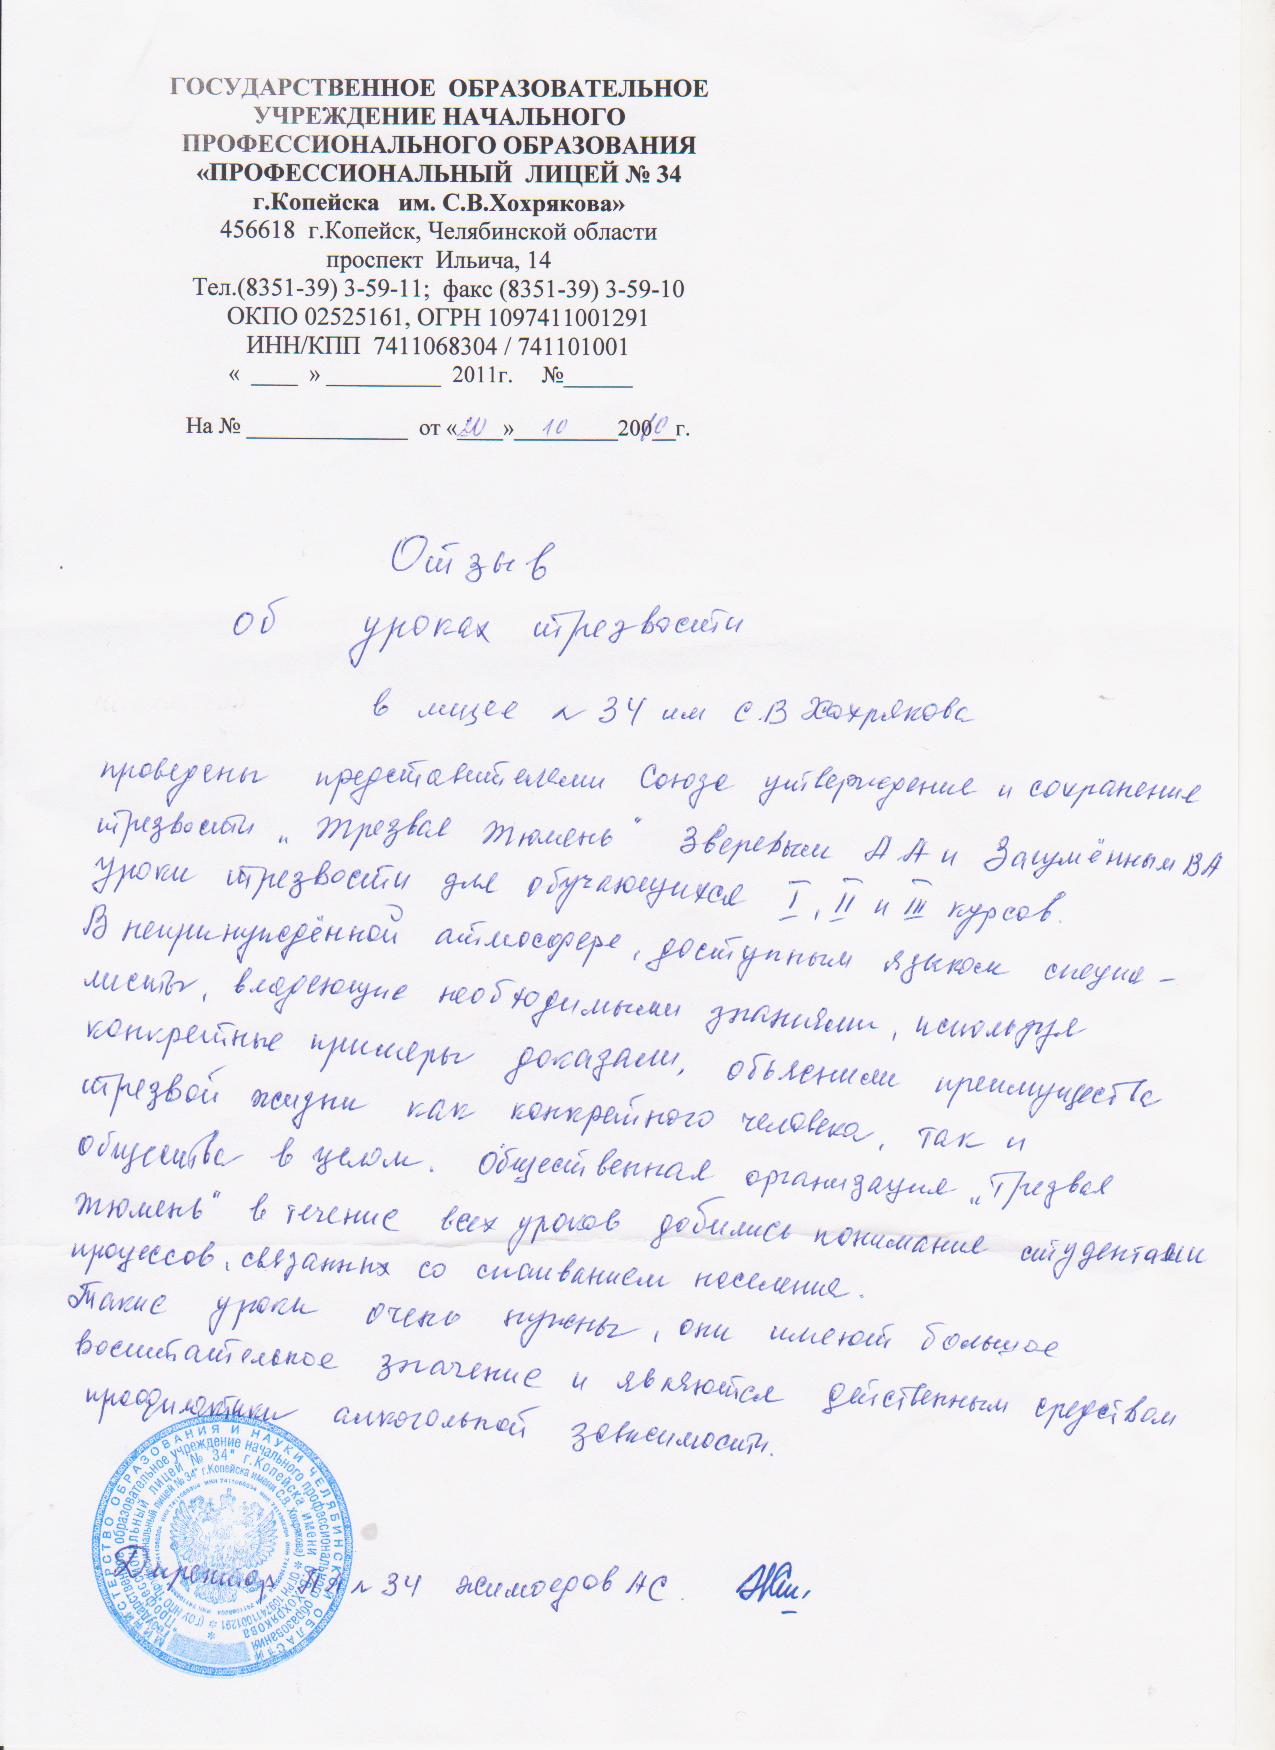 ГОСУДАРСТВЕННОЕ ОБРАЗОВАТЕЛЬНОЕ
УЧРЕЖДЕНИЕ НАЧАЛЬНОГО
ПРОФЕССИОНАЛЬНОГО ОБРАЗОВАНИЯ
«ПРОФЕССИОНАЛЬНЫЙ ЛИЦЕЙ № 34
г.Копейска им. С.В.Хохрякова»
456618 г.Копейск, Челябинской области
проспект Ильича, 14
Тел.(8351-39) 3-59-11; факс (8351-39) 3-59-10
ОКПО 02525161, ОГРН 1097411001291
ИНН/КПП 7411068304 / 741101001
« ____ » __________ 2011г. №______
На № ______________ от «20» 10 200 10 г.
Отзыв
об уроках трезвости
в лицее № 34 им С.В Хохрякова
проведены представителями Союза утверждение и сохранение
трезвости „Трезвая Тюмень" Зверевым А А и Загумённым ВА
уроки трезвости для обучающихся I, II и III курсов.
В непринуждённой атмосфере, доступным языком специа-
листы, владеющие необходимыми знаниями, используя
конкретные примеры доказали, объяснили преимущества
трезвой жизни как конкретного человека, так и
общества в целом. Общественная организация „Трезвая
Тюмень" в течение всех уроков добились понимание студентами
процессов, связанных со спаиванием населения.
Такие уроки очень нужны, они имеют большое
воспитательное значение и являются действенным средством
профилактики алкогольной зависимости.
Директор ПЛ № 34 Жимоедов АС.
МИНИСТЕРСТВО ОБРАЗОВАНИЯ И НАУКИ ЧЕЛЯБИНСКОЙ ОБЛАСТИ
Государственное образовательное учреждение начального профессионального образования
"Профессиональный лицей № 34" г.Копейска имени С.В. Хохрякова